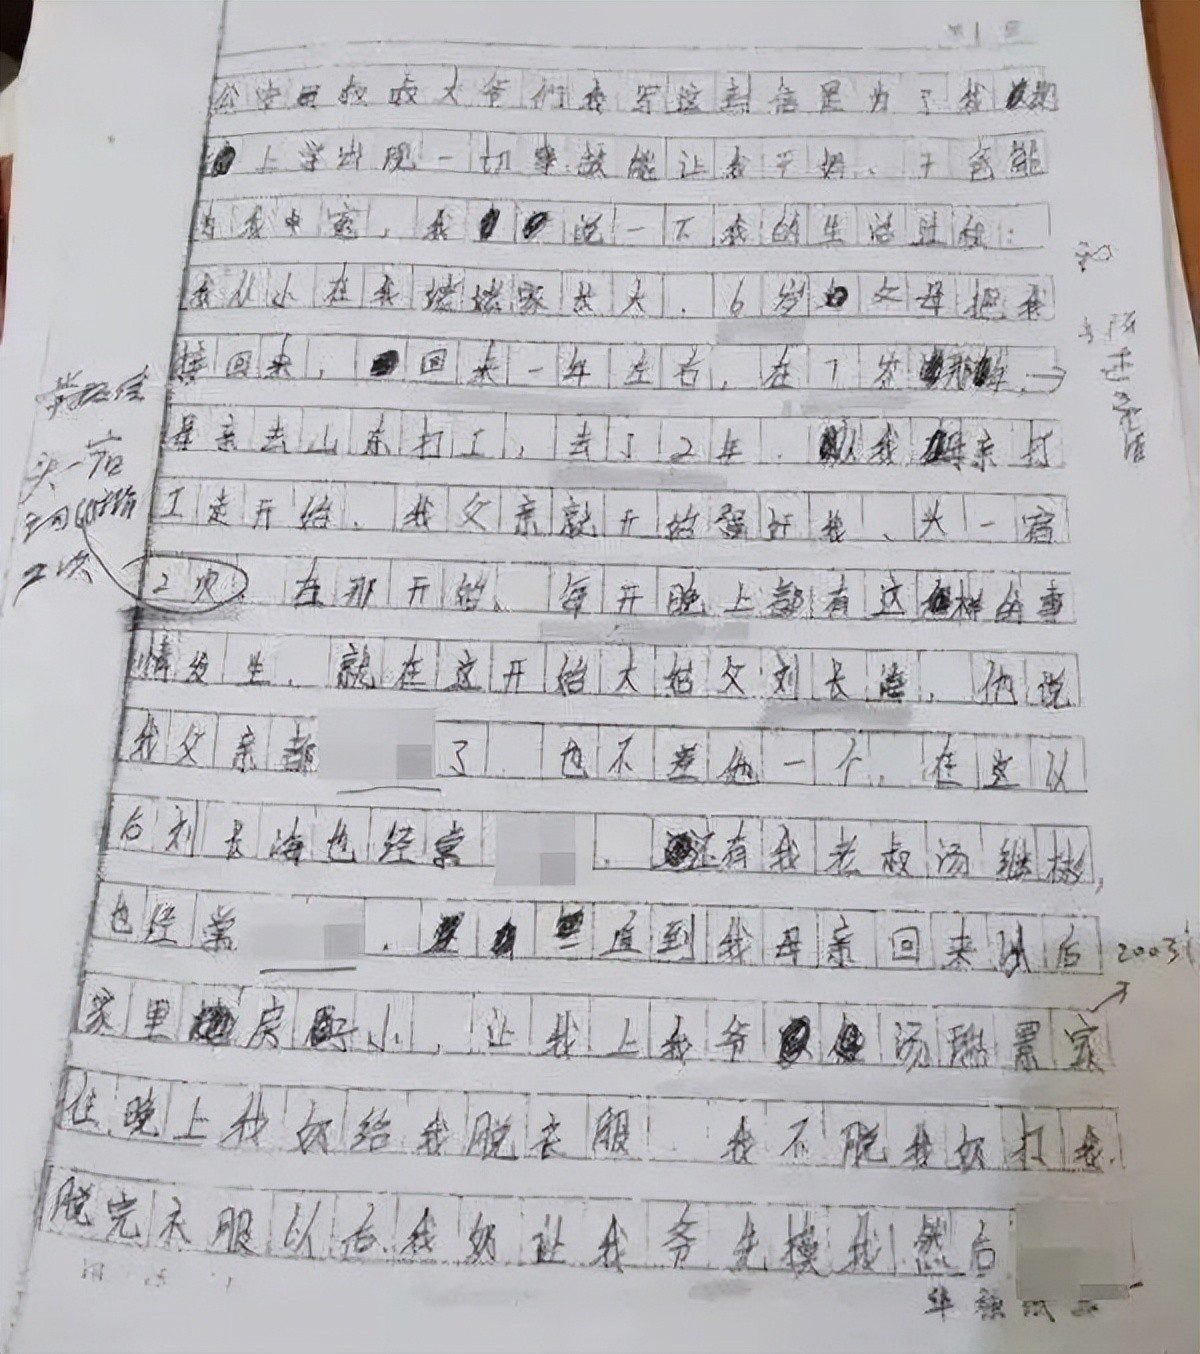 公安局叔叔大爷们我写这封信是为了我
上学出现一切事故能让我干妈、干爸能
为我申冤，我说一下我的生活过程：
我从小在我姥姥家长大，6岁父母把我
接回来，回来一年左右，在7岁那年，
母亲去山东打工，去了2年，从我母亲打
工走开始，我父亲就开始强奸我、头一宿
2次，在那开始、每天晚上都有这样的事
情发生，就在这开始大姑父刘长海，他说
我父亲都 了 也不差他一个，在这以
后刘长海也经常 ，还有我老叔汤继彬，
也经常 ，一直到我母亲回来以后
2003
家里房子小，让我上我爷汤瑞景家
住，晚上我奶给我脱衣服，我不脱我奶打我，
脱完衣服以后我奶让我爷先摸我，然后
头一宿
2次